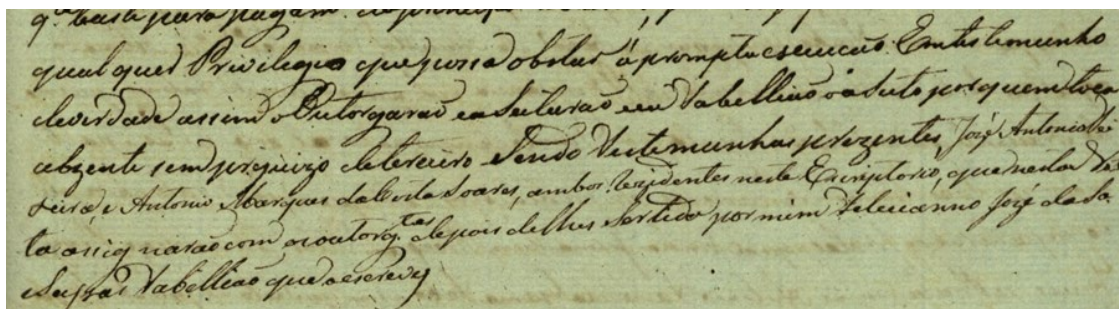 q.^ baste para pagam.^to do principal
qualquer Privilegio que possa obstar á prompta execucaõ. Em testemunho
de verdade assim o Outorgaraõ e aSeitaraõ e eu Tabelliaõ o aSeito por quem toca
abzente sem prejuizo de terceiro Sendo Testemunhas prezentes, Jozé Antonio
e Antonio Marques da Costa Soares, ambos rezidentes neste Escriptorio, que nesta
ta assignaraõ com os outorg.^tes depois de lhes Ser lido por mim Felicianno Jozé da Sa
Tabelliaõ que o escrevy